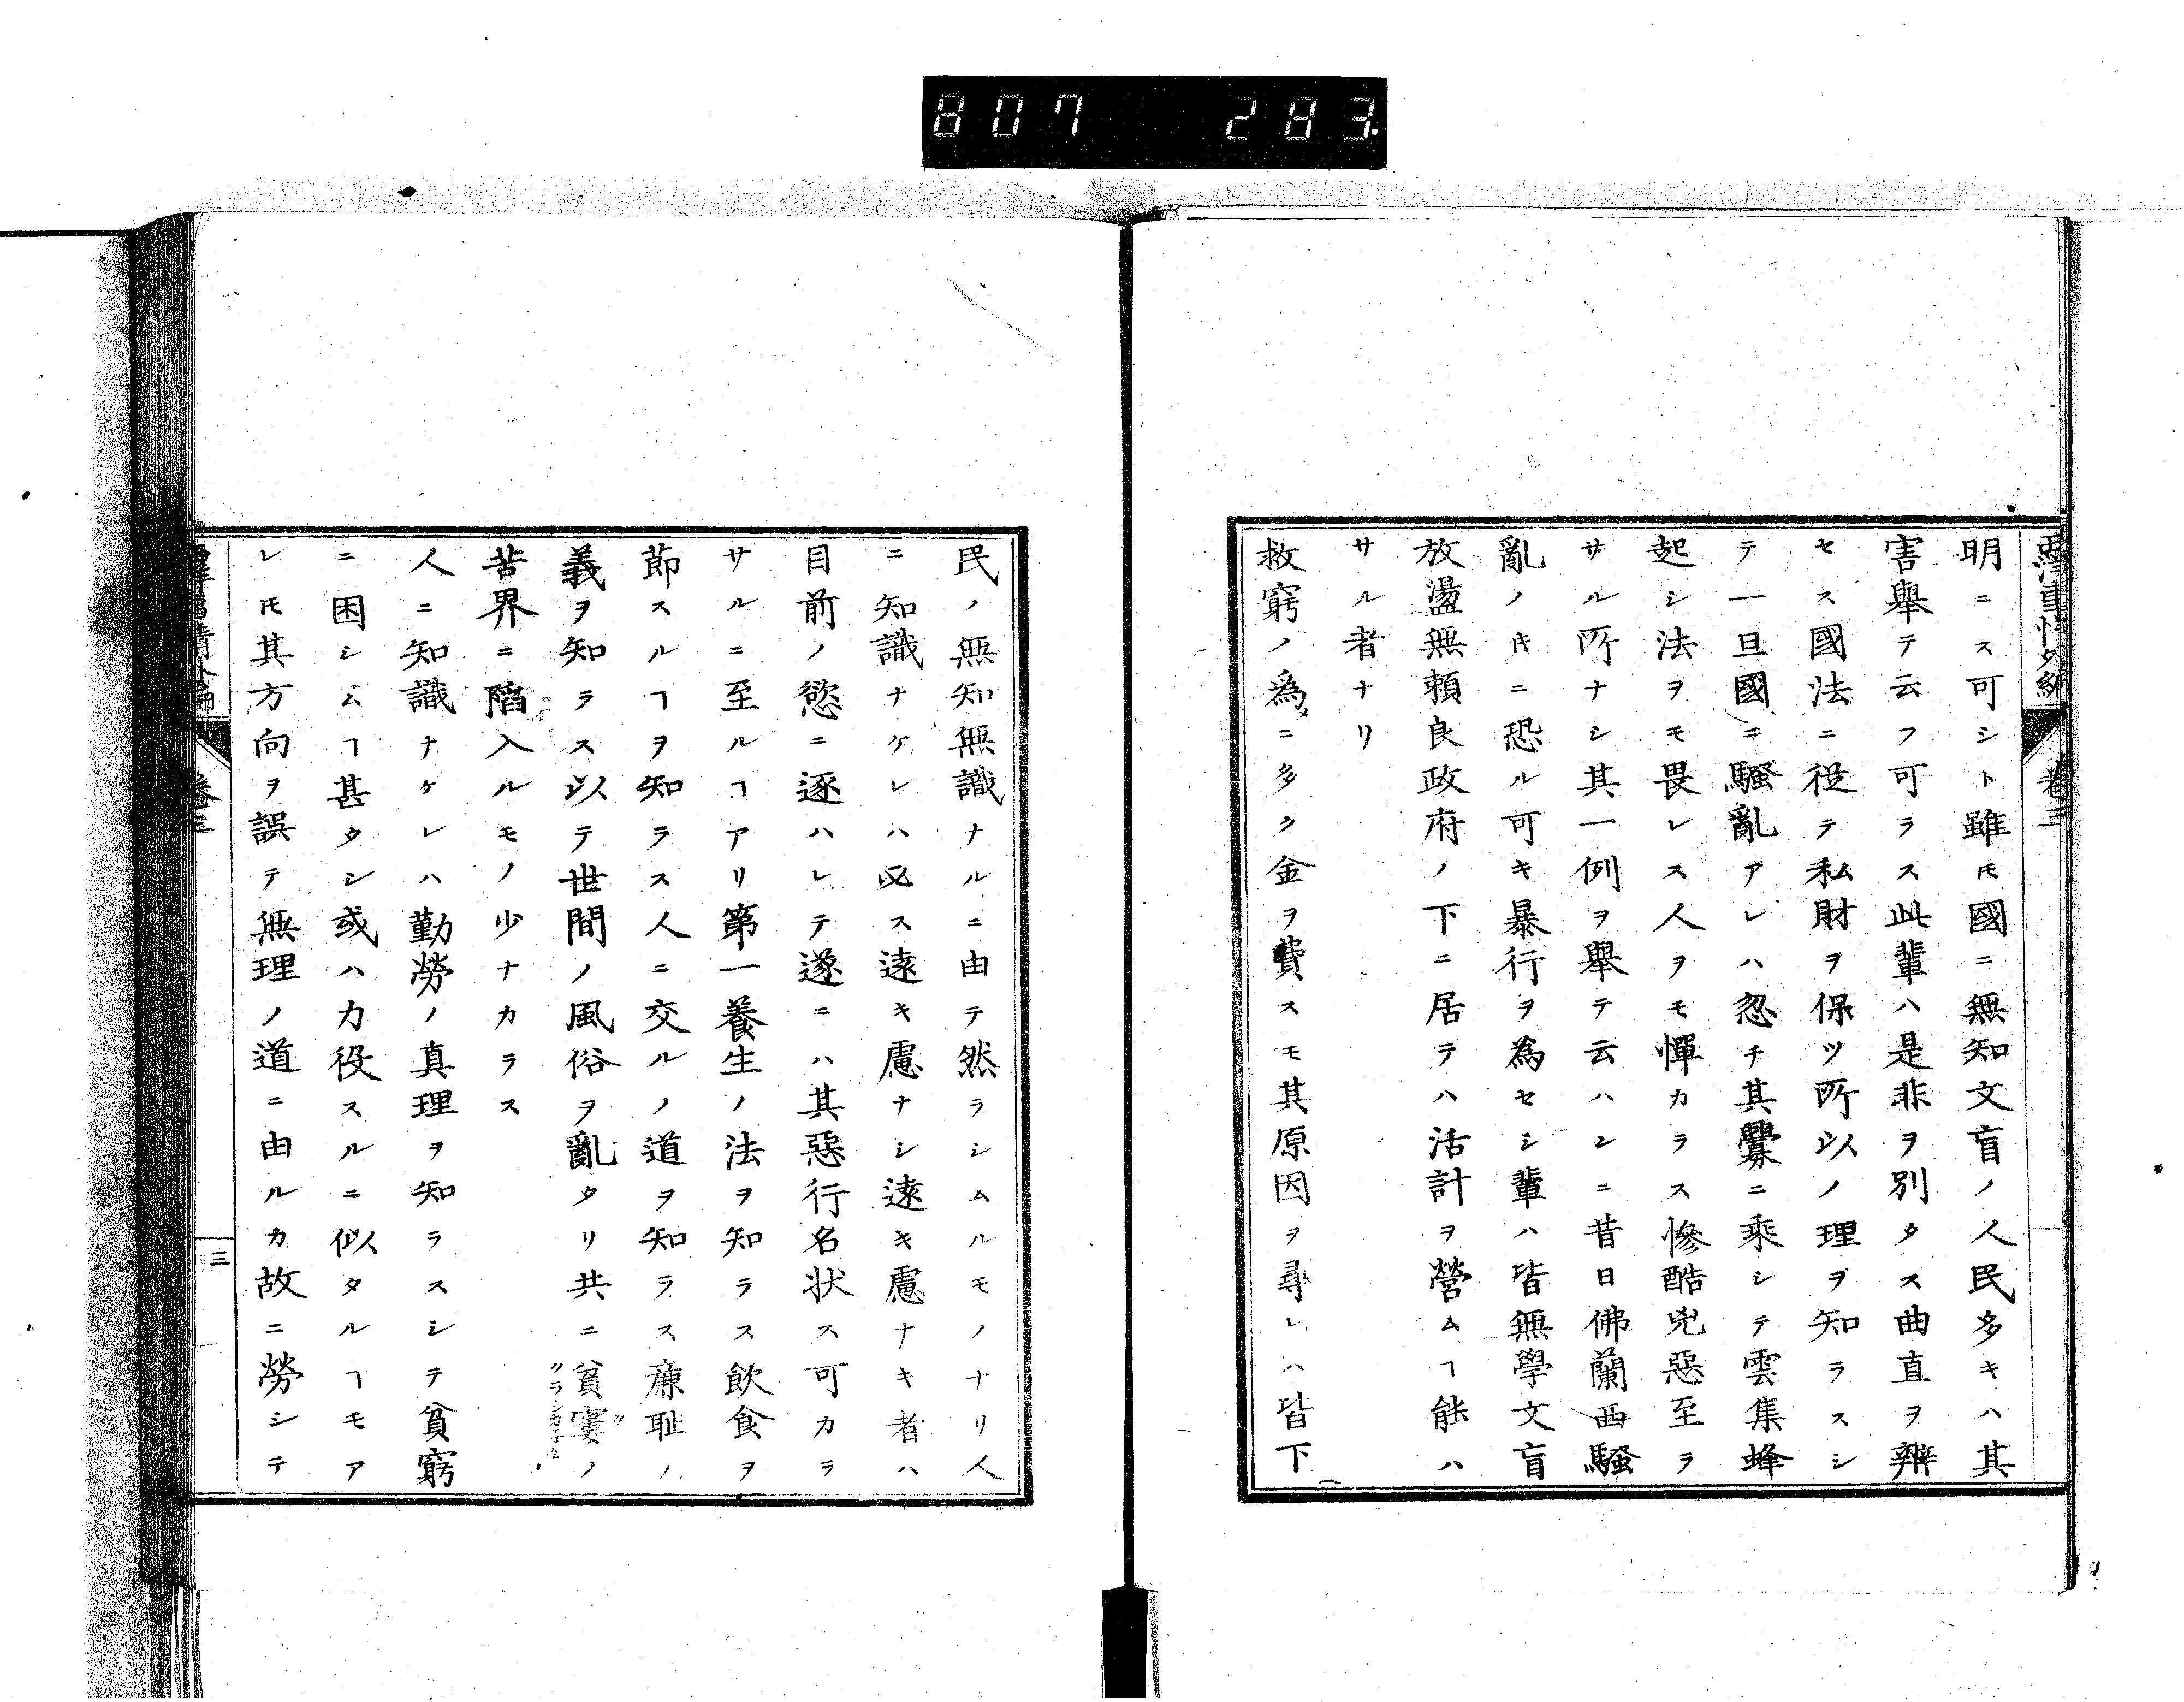 807 283.
卷三
明ニス可シト雖𪜈國ニ無知文盲ノ人民多キハ其
害舉テ云フ可ラス此輩ハ是非ヲ別タス曲直ヲ辨
セス國法ニ從テ私財ヲ保ツ所以ノ理ヲ知ラスシ
テ一旦國ニ騷亂アレハ忽チ其釁ニ乘シテ雲集蜂
起シ法ヲモ畏レス人ヲモ憚カラス慘酷兇惡至ラ
サル所ナシ其一例ヲ舉テ云ハンニ昔日佛蘭西騷
亂ノ𪜈ニ恐ル可キ暴行ヲ為セシ輩ハ皆無學文盲
放盪無頼良政府ノ下ニ居テハ活計ヲ營ムヿ能ハ
サル者ナリ
救窮ノ為メニ多ク金ヲ費スモ其原因ヲ尋レハ皆下
民ノ無知無識ナルニ由テ然ラシムルモノナリ人
ニ知識ナケレハ必ス遠キ慮ナシ遠キ慮ナキ者ハ
目前ノ慾ニ逐ハレテ遂ニハ其惡行名狀ス可カラ
サルニ至ルヿアリ第一養生ノ法ヲ知ラス飲食ヲ
節スルヿヲ知ラス人ニ交ルノ道ヲ知ラス廉耻ノ
義ヲ知ラス以テ世間ノ風俗ヲ亂タリ共ニ貧窶ノ
苦界ニ陷入ルモノ少ナカラス
人ニ知識ナケレハ勤勞ノ真理ヲ知ラスシテ貧窮
ニ困シムヿ甚タシ或ハ力役スルニ似タルヿモア
レ𪜈其方向ヲ誤テ無理ノ道ニ由ルカ故ニ勞シテ
卷三
三